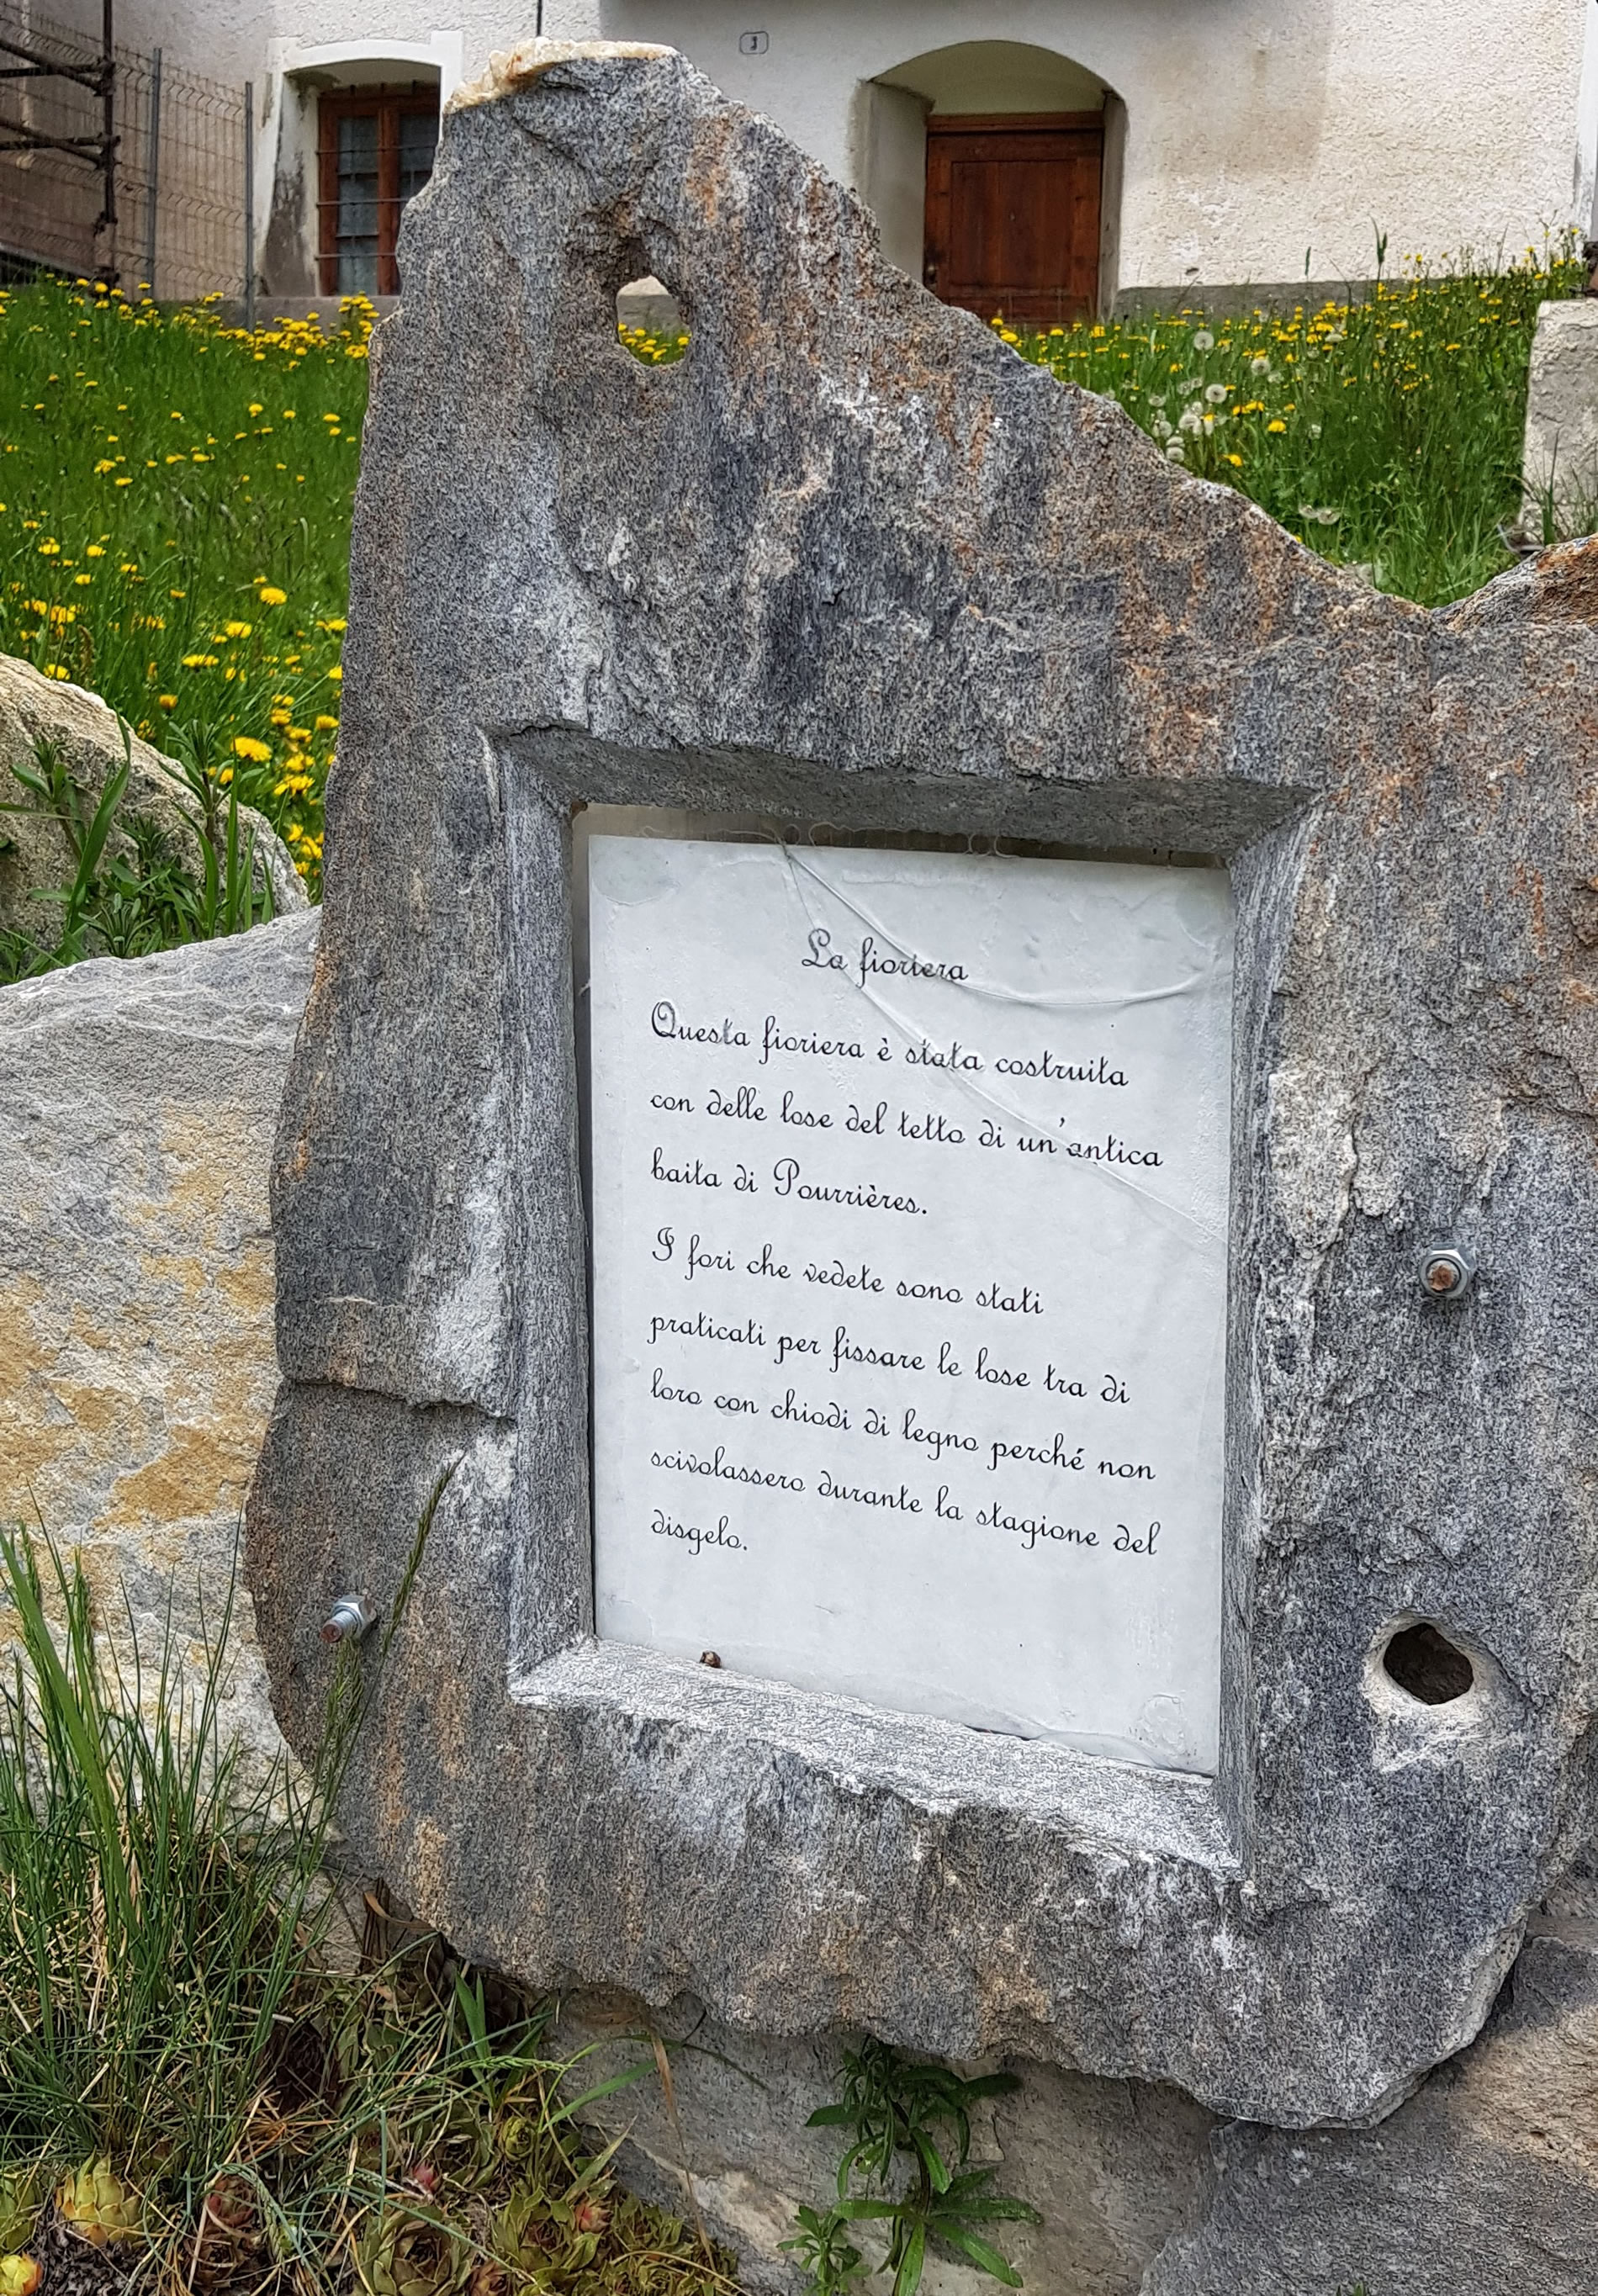 3
La fioriera
Questa fioriera è stata costruita
con delle lose del tetto di un'antica
baita di Pourrières.
I fori che vedete sono stati
praticati per fissare le lose tra di
loro con chiodi di legno perché non
scivolassero durante la stagione del
disgelo.